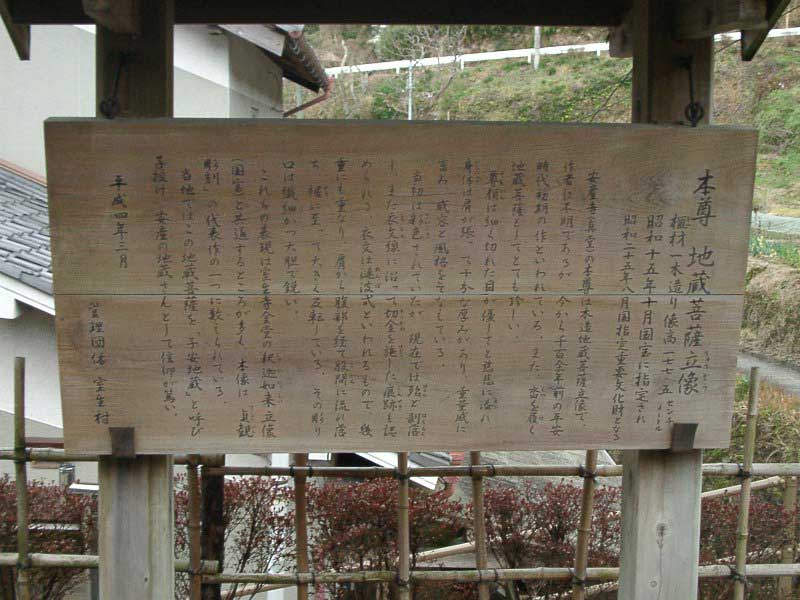 本尊 地蔵菩薩立像
榧材 一木造り 像高 一七七・五センチメートル
昭和十五年十月国宝に指定され
昭和二十五年八月国指定重要文化財となる
安産寺真堂の本尊は木造地蔵菩薩立像で
作者は不明であるが、今から千百余年前の平安
時代初期の作といわれている。また、沓を履く
地蔵菩薩としてとても珍しい。
尊顔は細く切れた目が優しさと慈悲に溢れ
身体は肩が張って十分な厚みがあり、重量感に
富み、威容と風格をそなえている。
当初は彩色されていたが、現在では殆ど剥落
し、また衣文線に沿って切金を施した痕跡も認
められる。衣文は漣波式といわれるもので、幾
重にも重なり、肩から腹部を経て股間に流れ落
ち、裾に至って大きく反転している。その彫り
口は繊細かつ大胆で鋭い。
これらの表現は室生寺金堂の釈迦如来立像
(国宝)と共通するところが多く、本像は「貞観
彫刻」の代表作の一つに数えられている。
当地ではこの地蔵菩薩を、「子安地蔵」と呼び
子授け、安産の地蔵さんとして信仰が篤い。
平成四年三月
管理団体 室生村